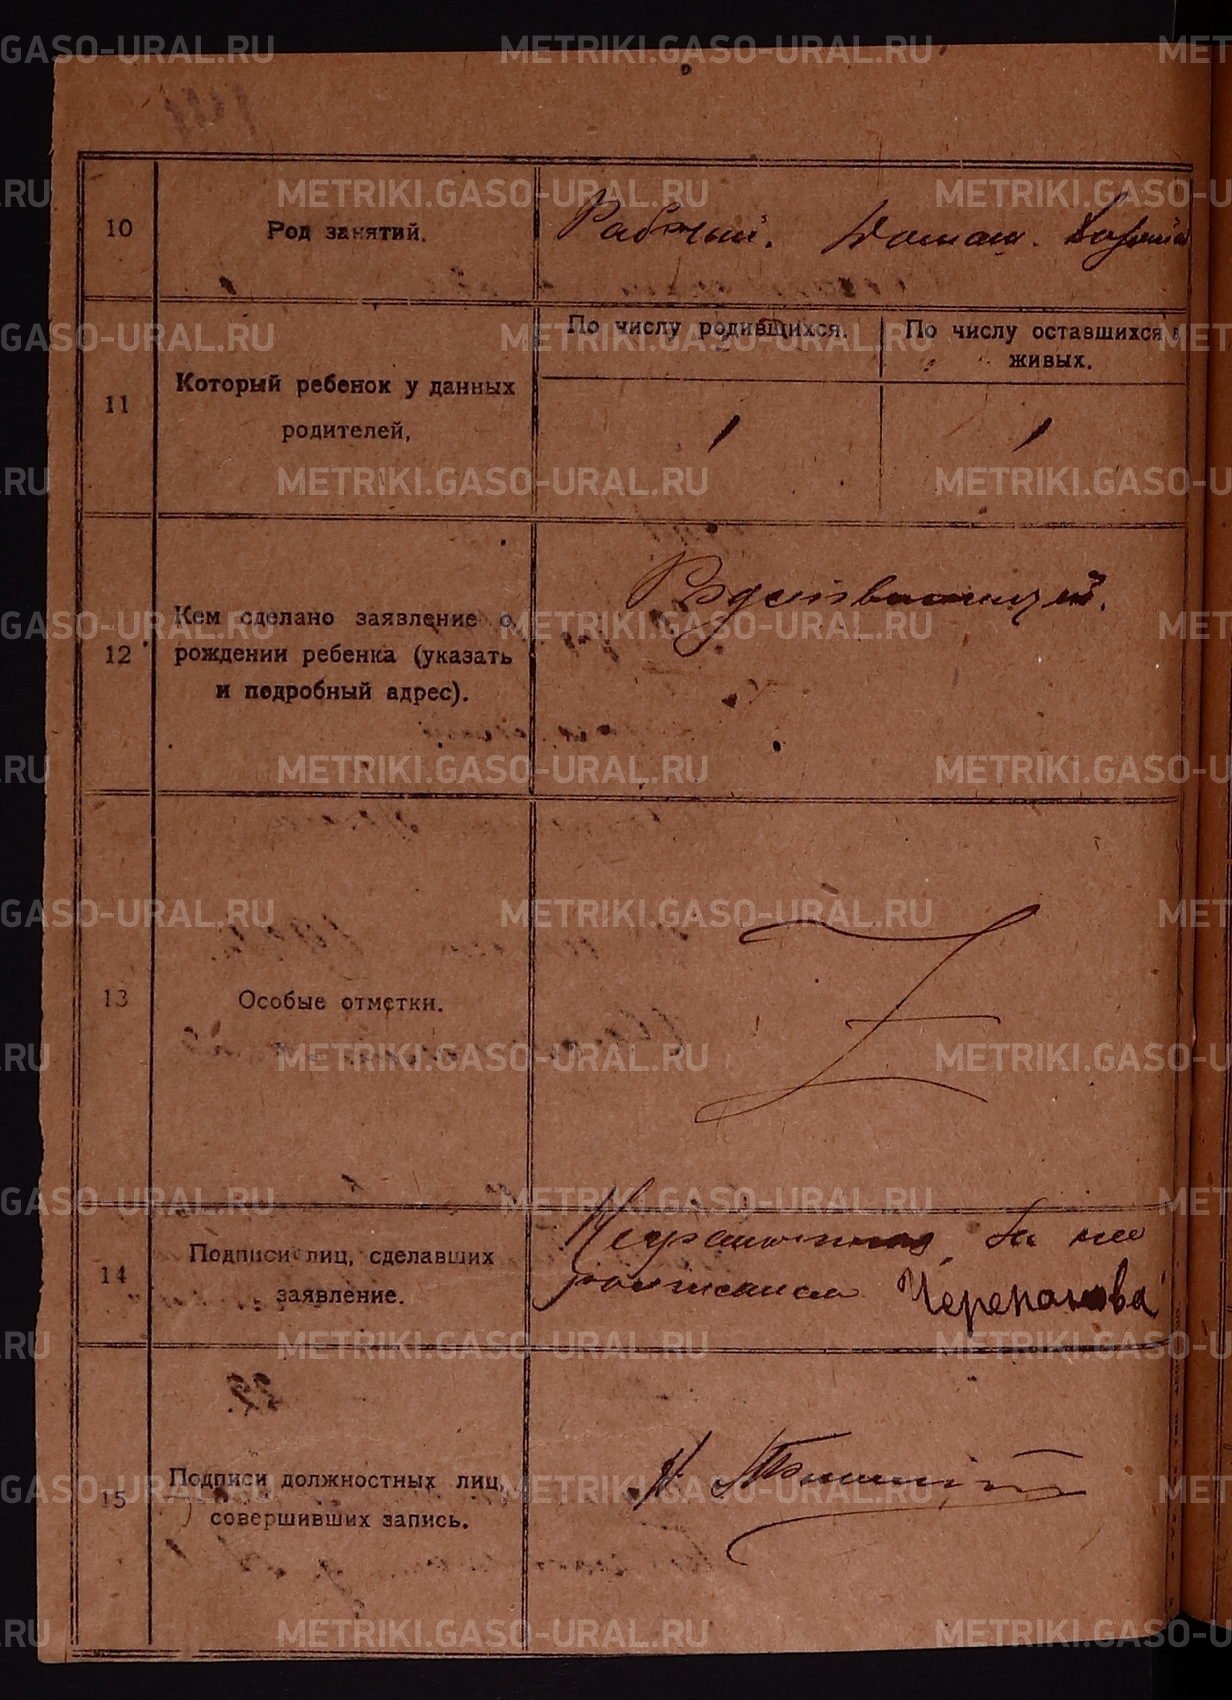 10
Род занятий.
Рабочий. Домаш. хозяй
11
Который ребенок у данных
родителей,
По числу родившихся.
По числу оставшихся в
живых.
1
1
12
Кем сделано заявление о
рождении ребенка (указать
и подробный адрес).
13
Особые отметки.
Z
14
Подписи лиц, сделавших
заявление.
Неграмотная, за нее
расписалась Черепанова
15
Подписи должностных лиц,
совершивших запись.
METRIKI.GASO-URAL.RU